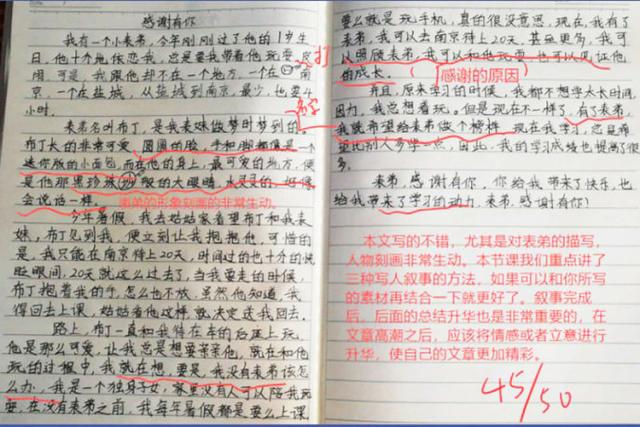 感谢有你
我有一个小表弟，今年刚刚过了他的1岁生
日，他十分地依恋我，总是要我带着他玩耍、
闹，可是，我跟他却不在一个地方，一个在
京，一个在盐城，从盐城到南京，最少，也要4
小时。
表弟名叫布丁，是我表妹做梦时梦到的
布丁长的非常可爱，圆圆的脸，手和脚都像是一个
迷你版的小面包，而在他的身上，最可爱的地方，便
是他那黑珍珠般的大眼睛，水灵灵的，好像
会说话一样。
表弟的形象刻画的非常生动。
今年暑假，我去姑姑家看望布丁和我表
妹，布丁见到我，便立刻让我抱抱他，可惜的
是，我只能在南京待上20天，时间过的也十分的快
眨眼间，20天就这么过去了，当我要走的时候，
布丁抱着我的手，怎么也不放，虽然他知道，我
得回去上课，姑姑看他这样就决定送我回去。
路上，布丁一直和我待在车的后座上玩，
他是那么可爱，让我总是想要亲亲他，就在和他
玩的过程中，我就在想，要是，我没有表弟该怎
么办，我是一个独身子女，家里没有人可以陪我玩
耍，在没有表弟之前，我每年暑假都是要么上课
要么就是玩手机，真的很没意思，现在，我有了
表弟，我可以去南京待上20天，甚至更多，我可
以照顾表弟，我可以和他玩耍，也可以见证他
的成长。
感谢的原因
并且，原来学习的时候，我都不想学太长时间
因为，我总想着玩。但是现在不一样了，有了表弟，
我就希望给表弟做个榜样，现在我学习，总是希
望比别人多学一点，由此，我的学习成绩也提高了很
多。
表弟，感谢有你，你给我带来了快乐，也
给我带来了学习的动力，表弟，感谢有你！
本文写的不错，尤其是对表弟的描写，
人物刻画非常生动。本节课我们重点讲了
三种写人叙事的方法，如果可以和你所写
的素材再结合一下就更好了。叙事完成
后。后面的总结升华也是非常重要的，在
文章高潮之后，应该将情感或者立意进行
升华，使自己的文章更加精彩。
45/50